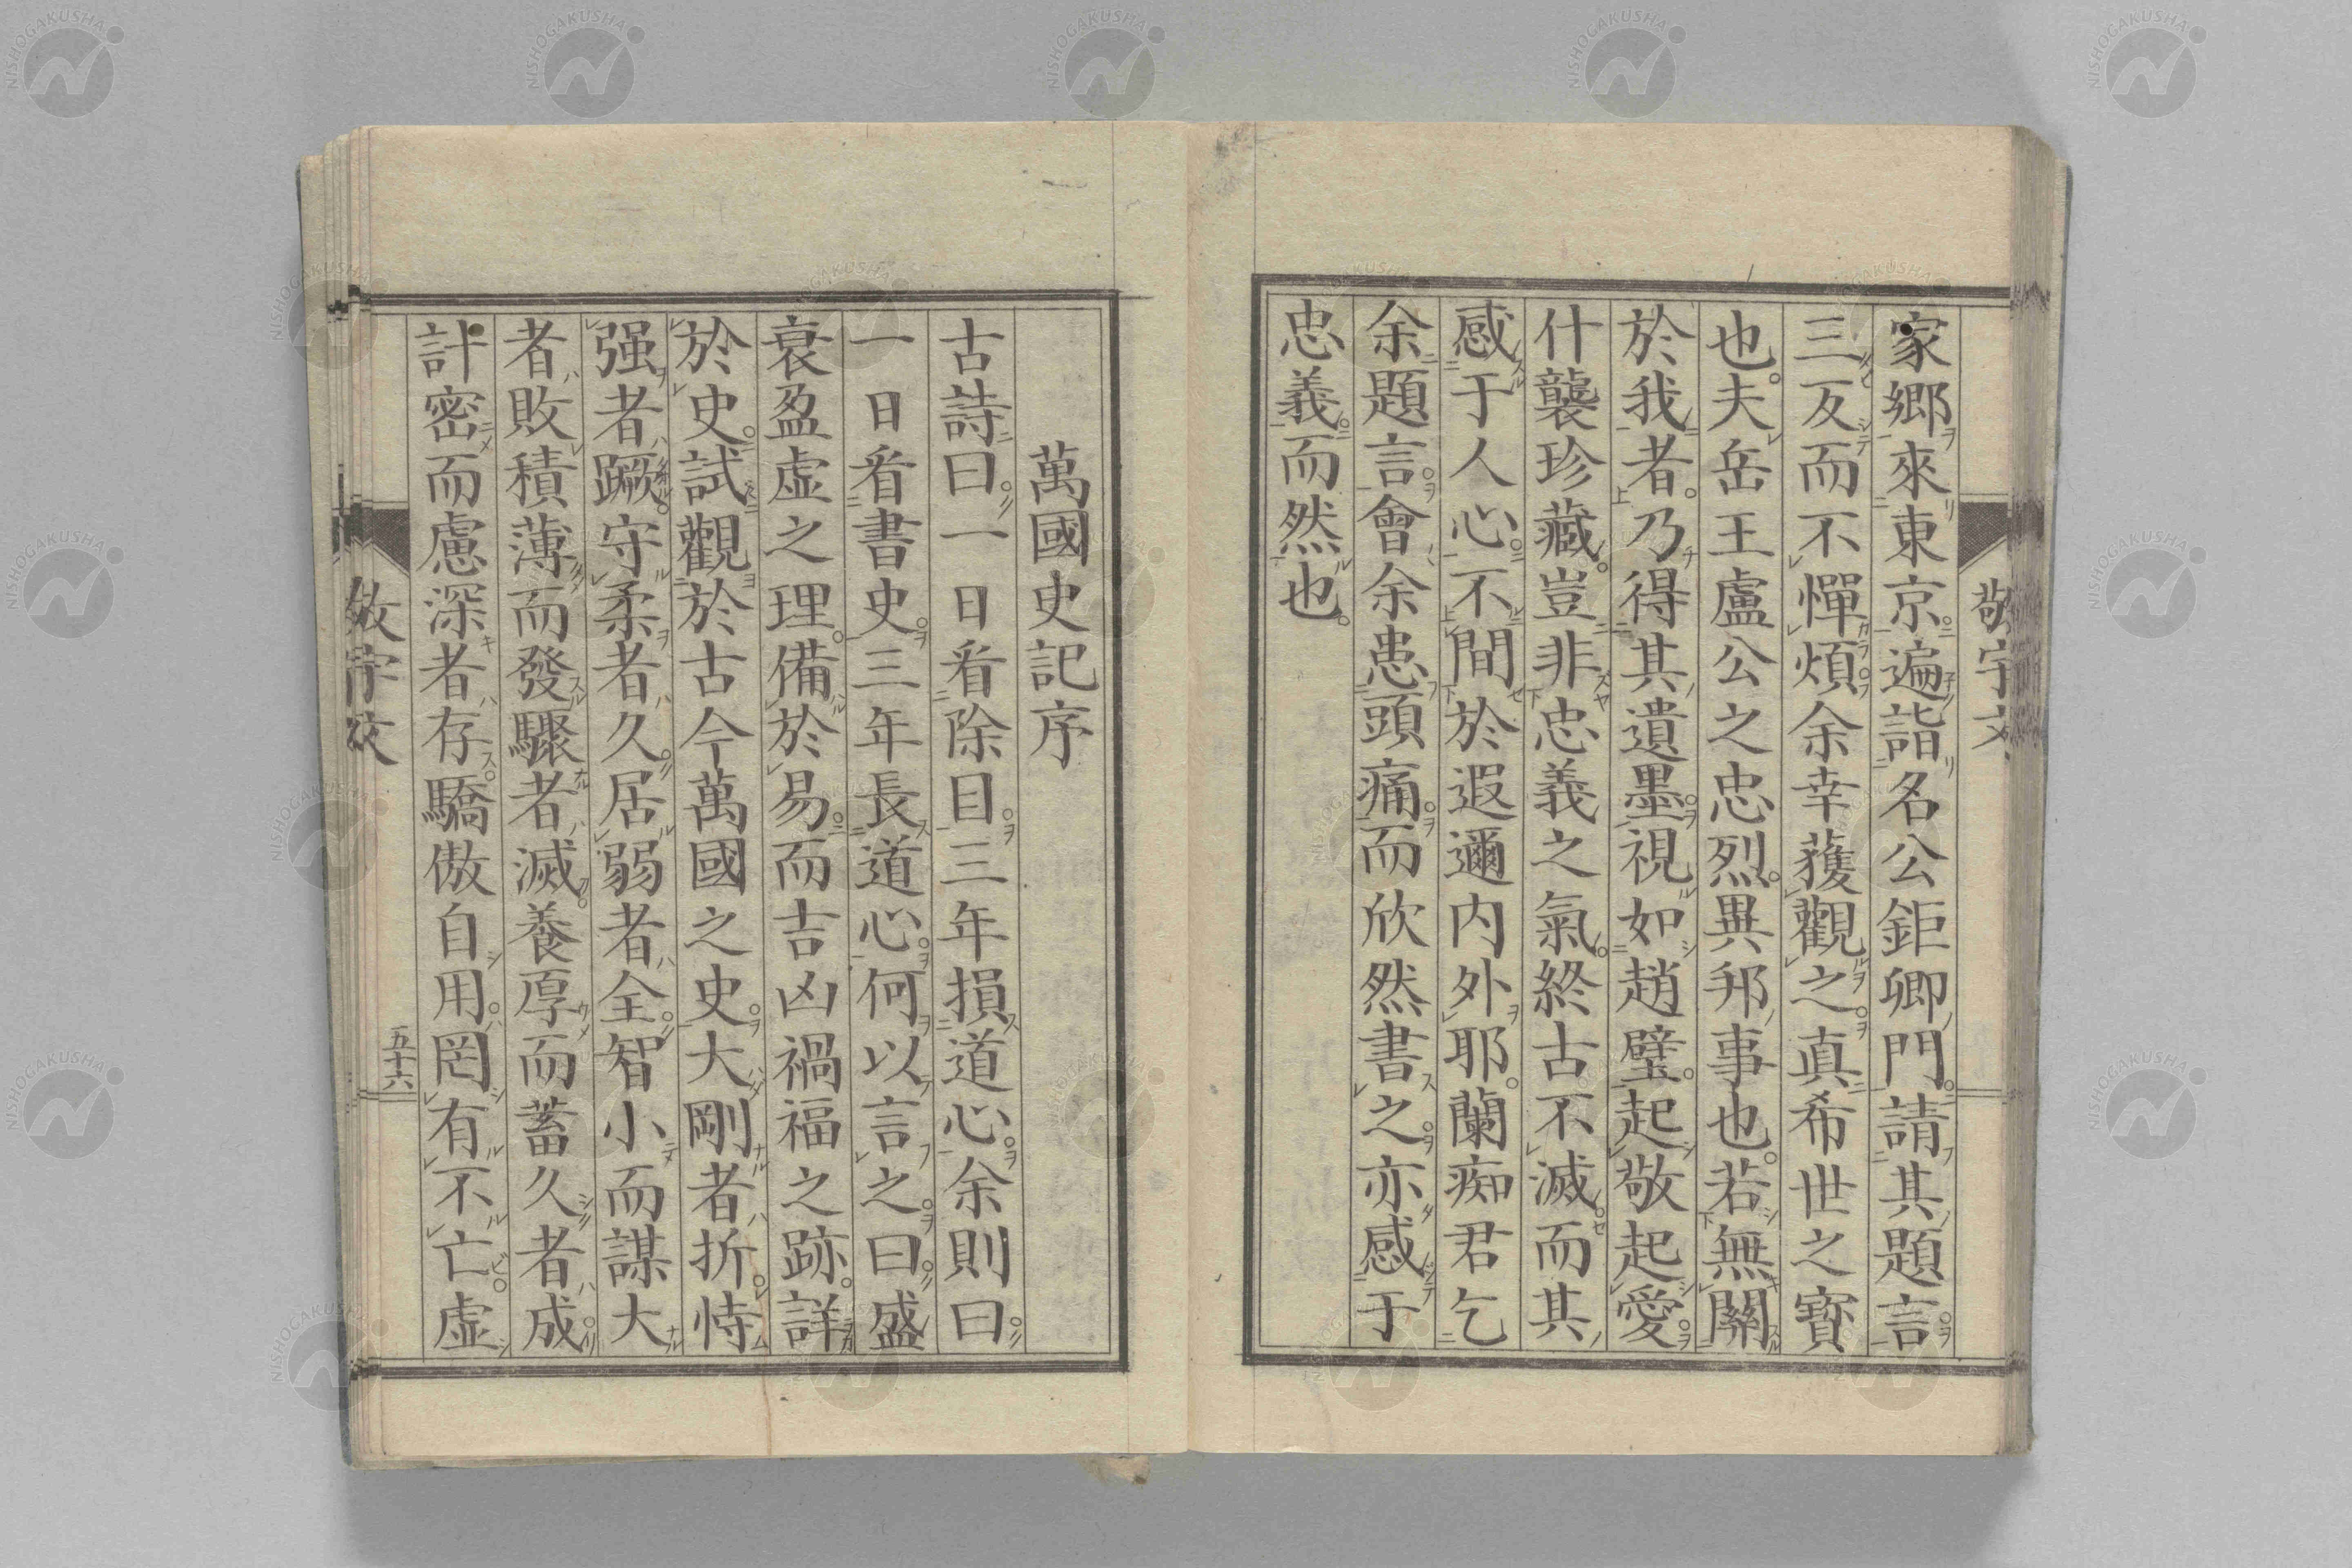 敬宇文
家鄉來東京遍詣名公鉅卿門請其題言
三反而不憚煩余幸獲觀之真希世之寶
也夫岳王盧公之忠烈異邦事也若無關
於我者乃得其遺墨視如趙璧起敬起愛
什襲珍藏豈非忠義之氣終古不滅而其
感于人心不間於遐邇内外耶蘭痴君乞
余題言會余患頭痛而欣然書之亦感于
忠義而然也
萬國史記序
古詩曰一日看除目三年損道心余則曰
一日看書史三年長道心何以言之曰盛
衰盈虛之理備於易而吉凶禍福之跡詳
於史試觀於古今萬國之史大剛者折恃
强者蹶守柔者久居弱者全智小而謀大
者敗積薄而發驟者滅養厚而蓄久者成
計密而慮深者存驕傲自用罔有不亡虛
敬宇文
五十六
NISHOGAKUSHA